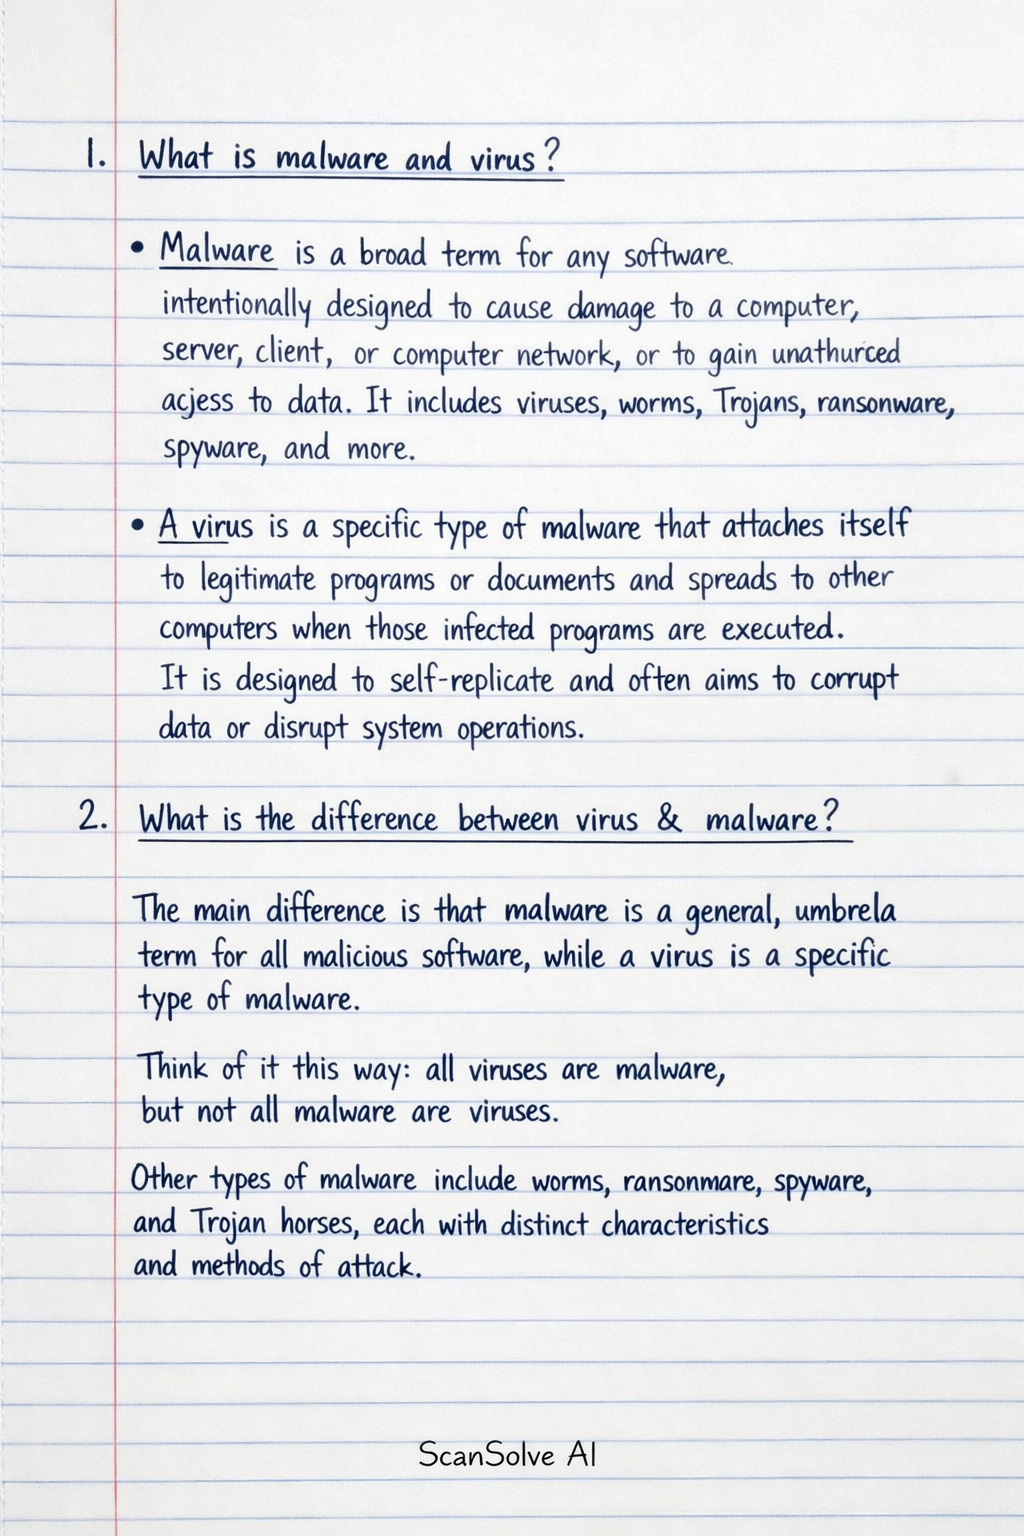 1. What is malware and virus?
• Malware is a broad term for any software.
intentionally designed to cause damage to a computer,
server, client, or computer network, or to gain unathurced
acjess to data. It includes viruses, worms, Trojans, ransonware,
spyware, and more.
• A virus is a specific type of malware that attaches itself
to legitimate programs or documents and spreads to other
computers when those infected programs are executed.
It is designed to self-replicate and often aims to corrupt
data or disrupt system operations.
2. What is the difference between virus & malware?
The main difference is that malware is a general, umbrela
term for all malicious software, while a virus is a specific
type of malware.
Think of it this way: all viruses are malware,
but not all malware are viruses.
Other types of malware include worms, ransonmare, spyware,
and Trojan horses, each with distinct characteristics
and methods of attack.
ScanSolve AI